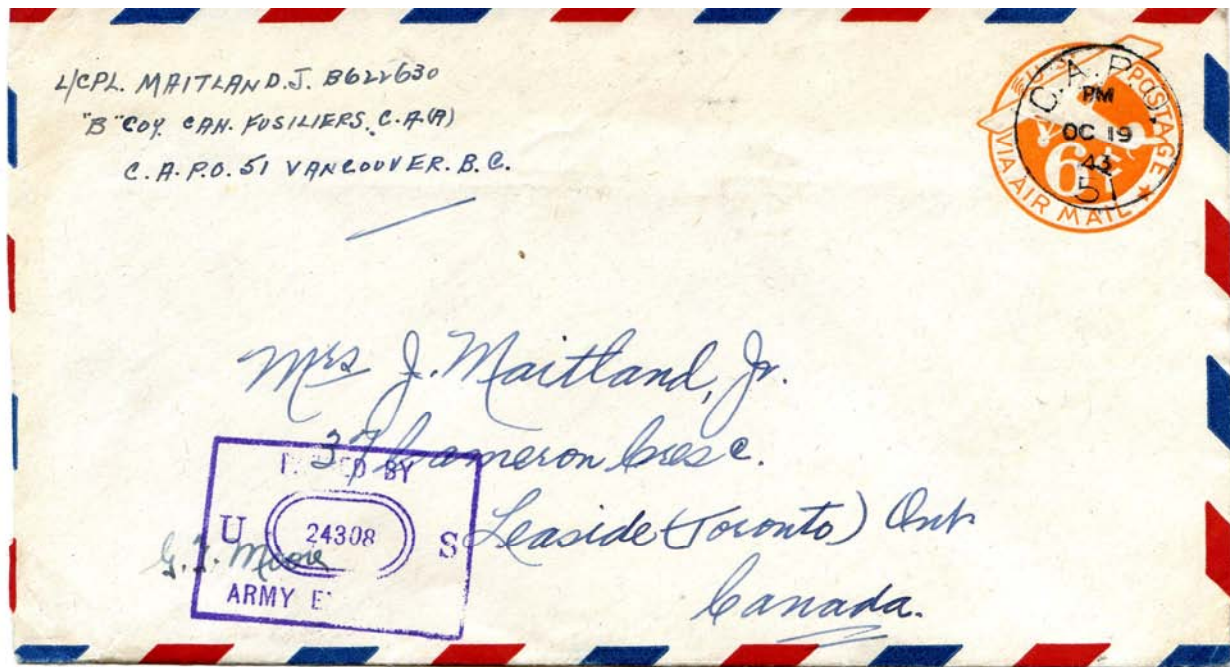 L/CPL. MAITLAND. J. B622630
"B" COY. CAN. FUSILIERS. C.A.(A)
C.A.P.O. 51 VANCOUVER. B.C.
U.S. POSTAGE
VIA AIR MAIL
6¢
C.A.P.O.
PM
OC 19
43
51
Mrs J. Maitland, Jr.
37 Cameron Cresc.
Leaside (Toronto) Ont
Canada.
BY
U 24308 S
ARMY E
G. F. Moore